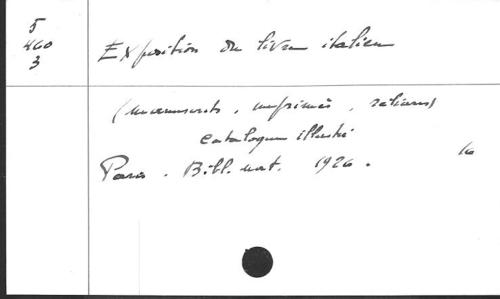 5
460
3
Exposition du livre italien
(manuscrits, imprimés, reliures)
catalogue illustré
Paris. Bibl. nat. 1926.
16